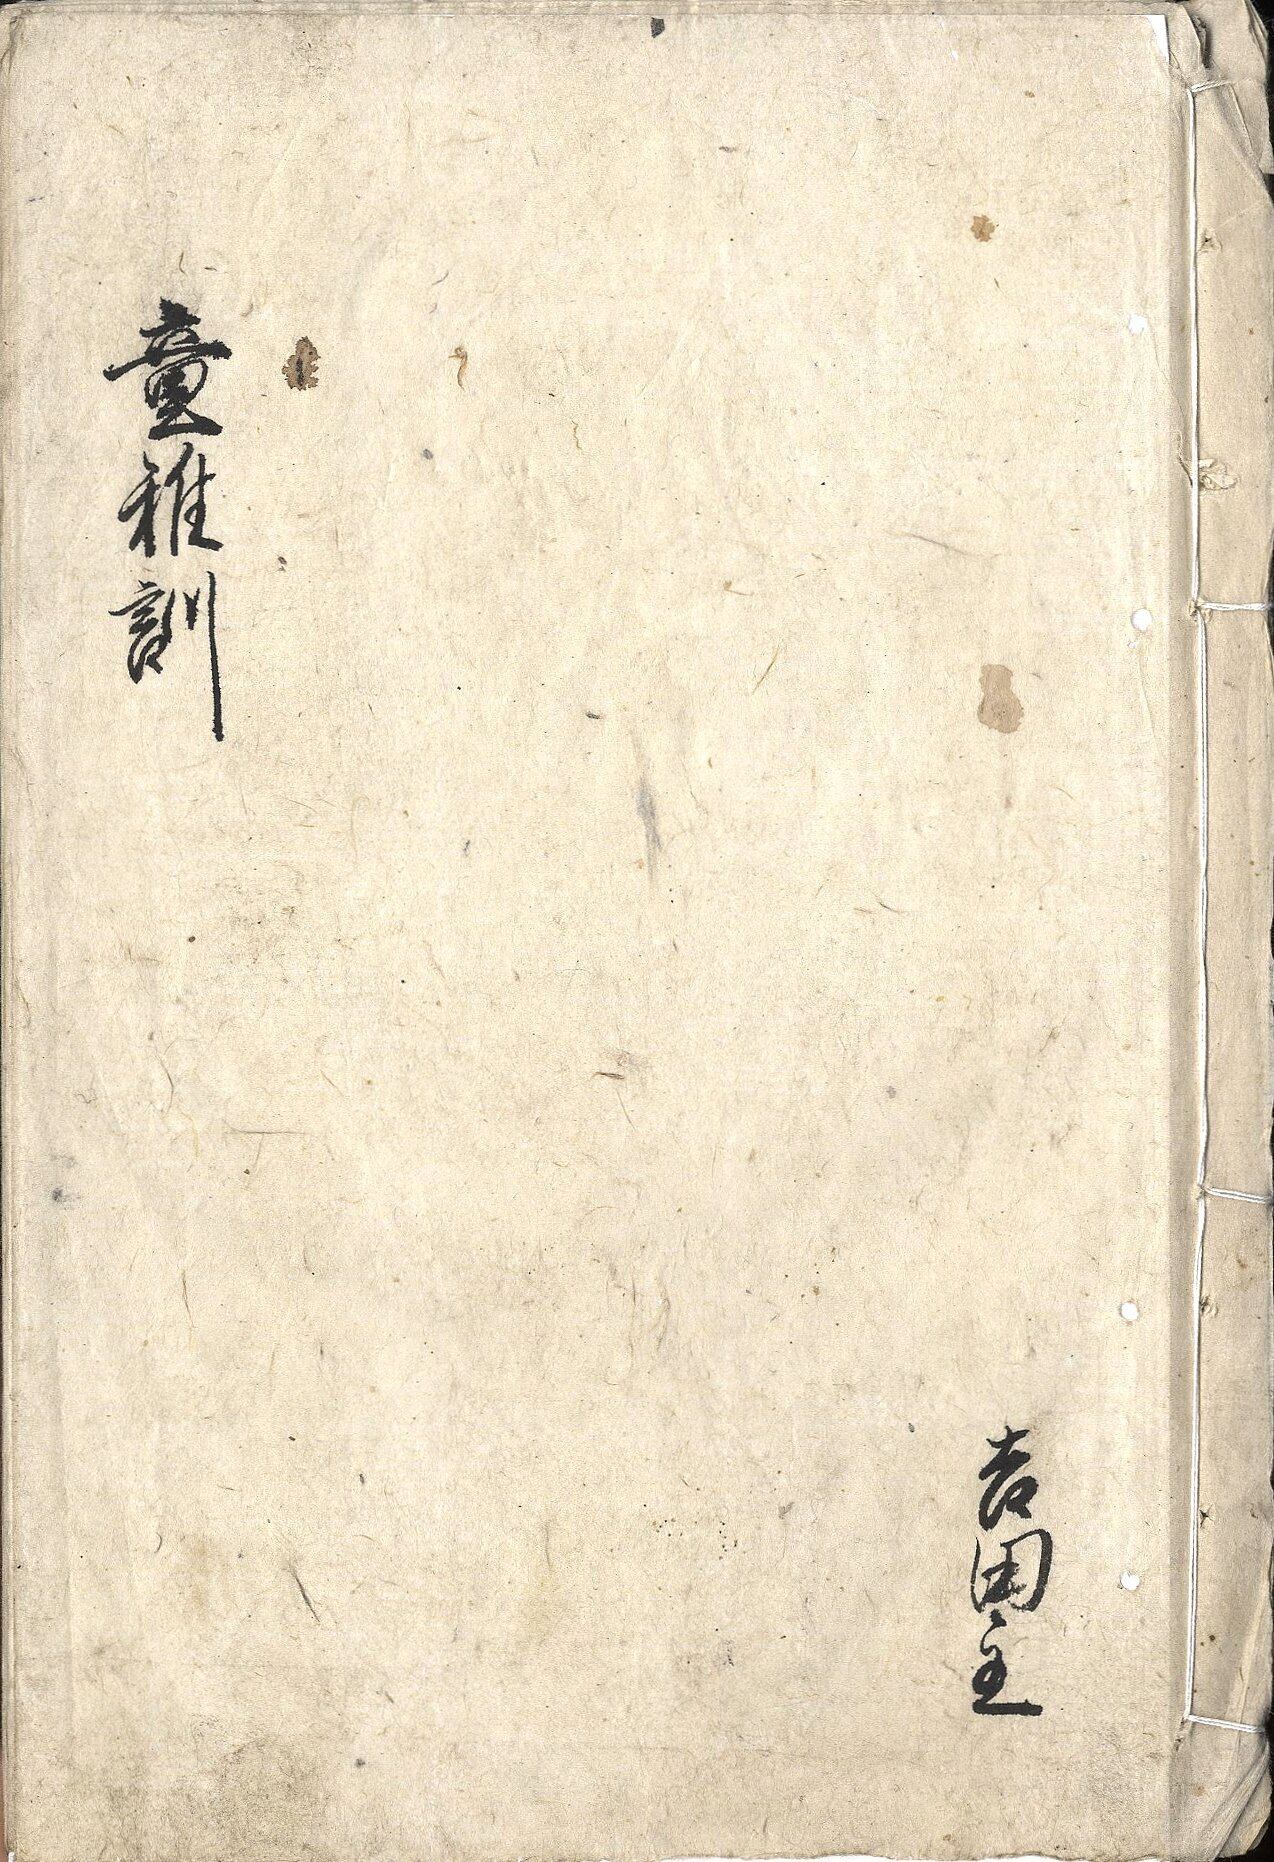 童稚訓
吉田主